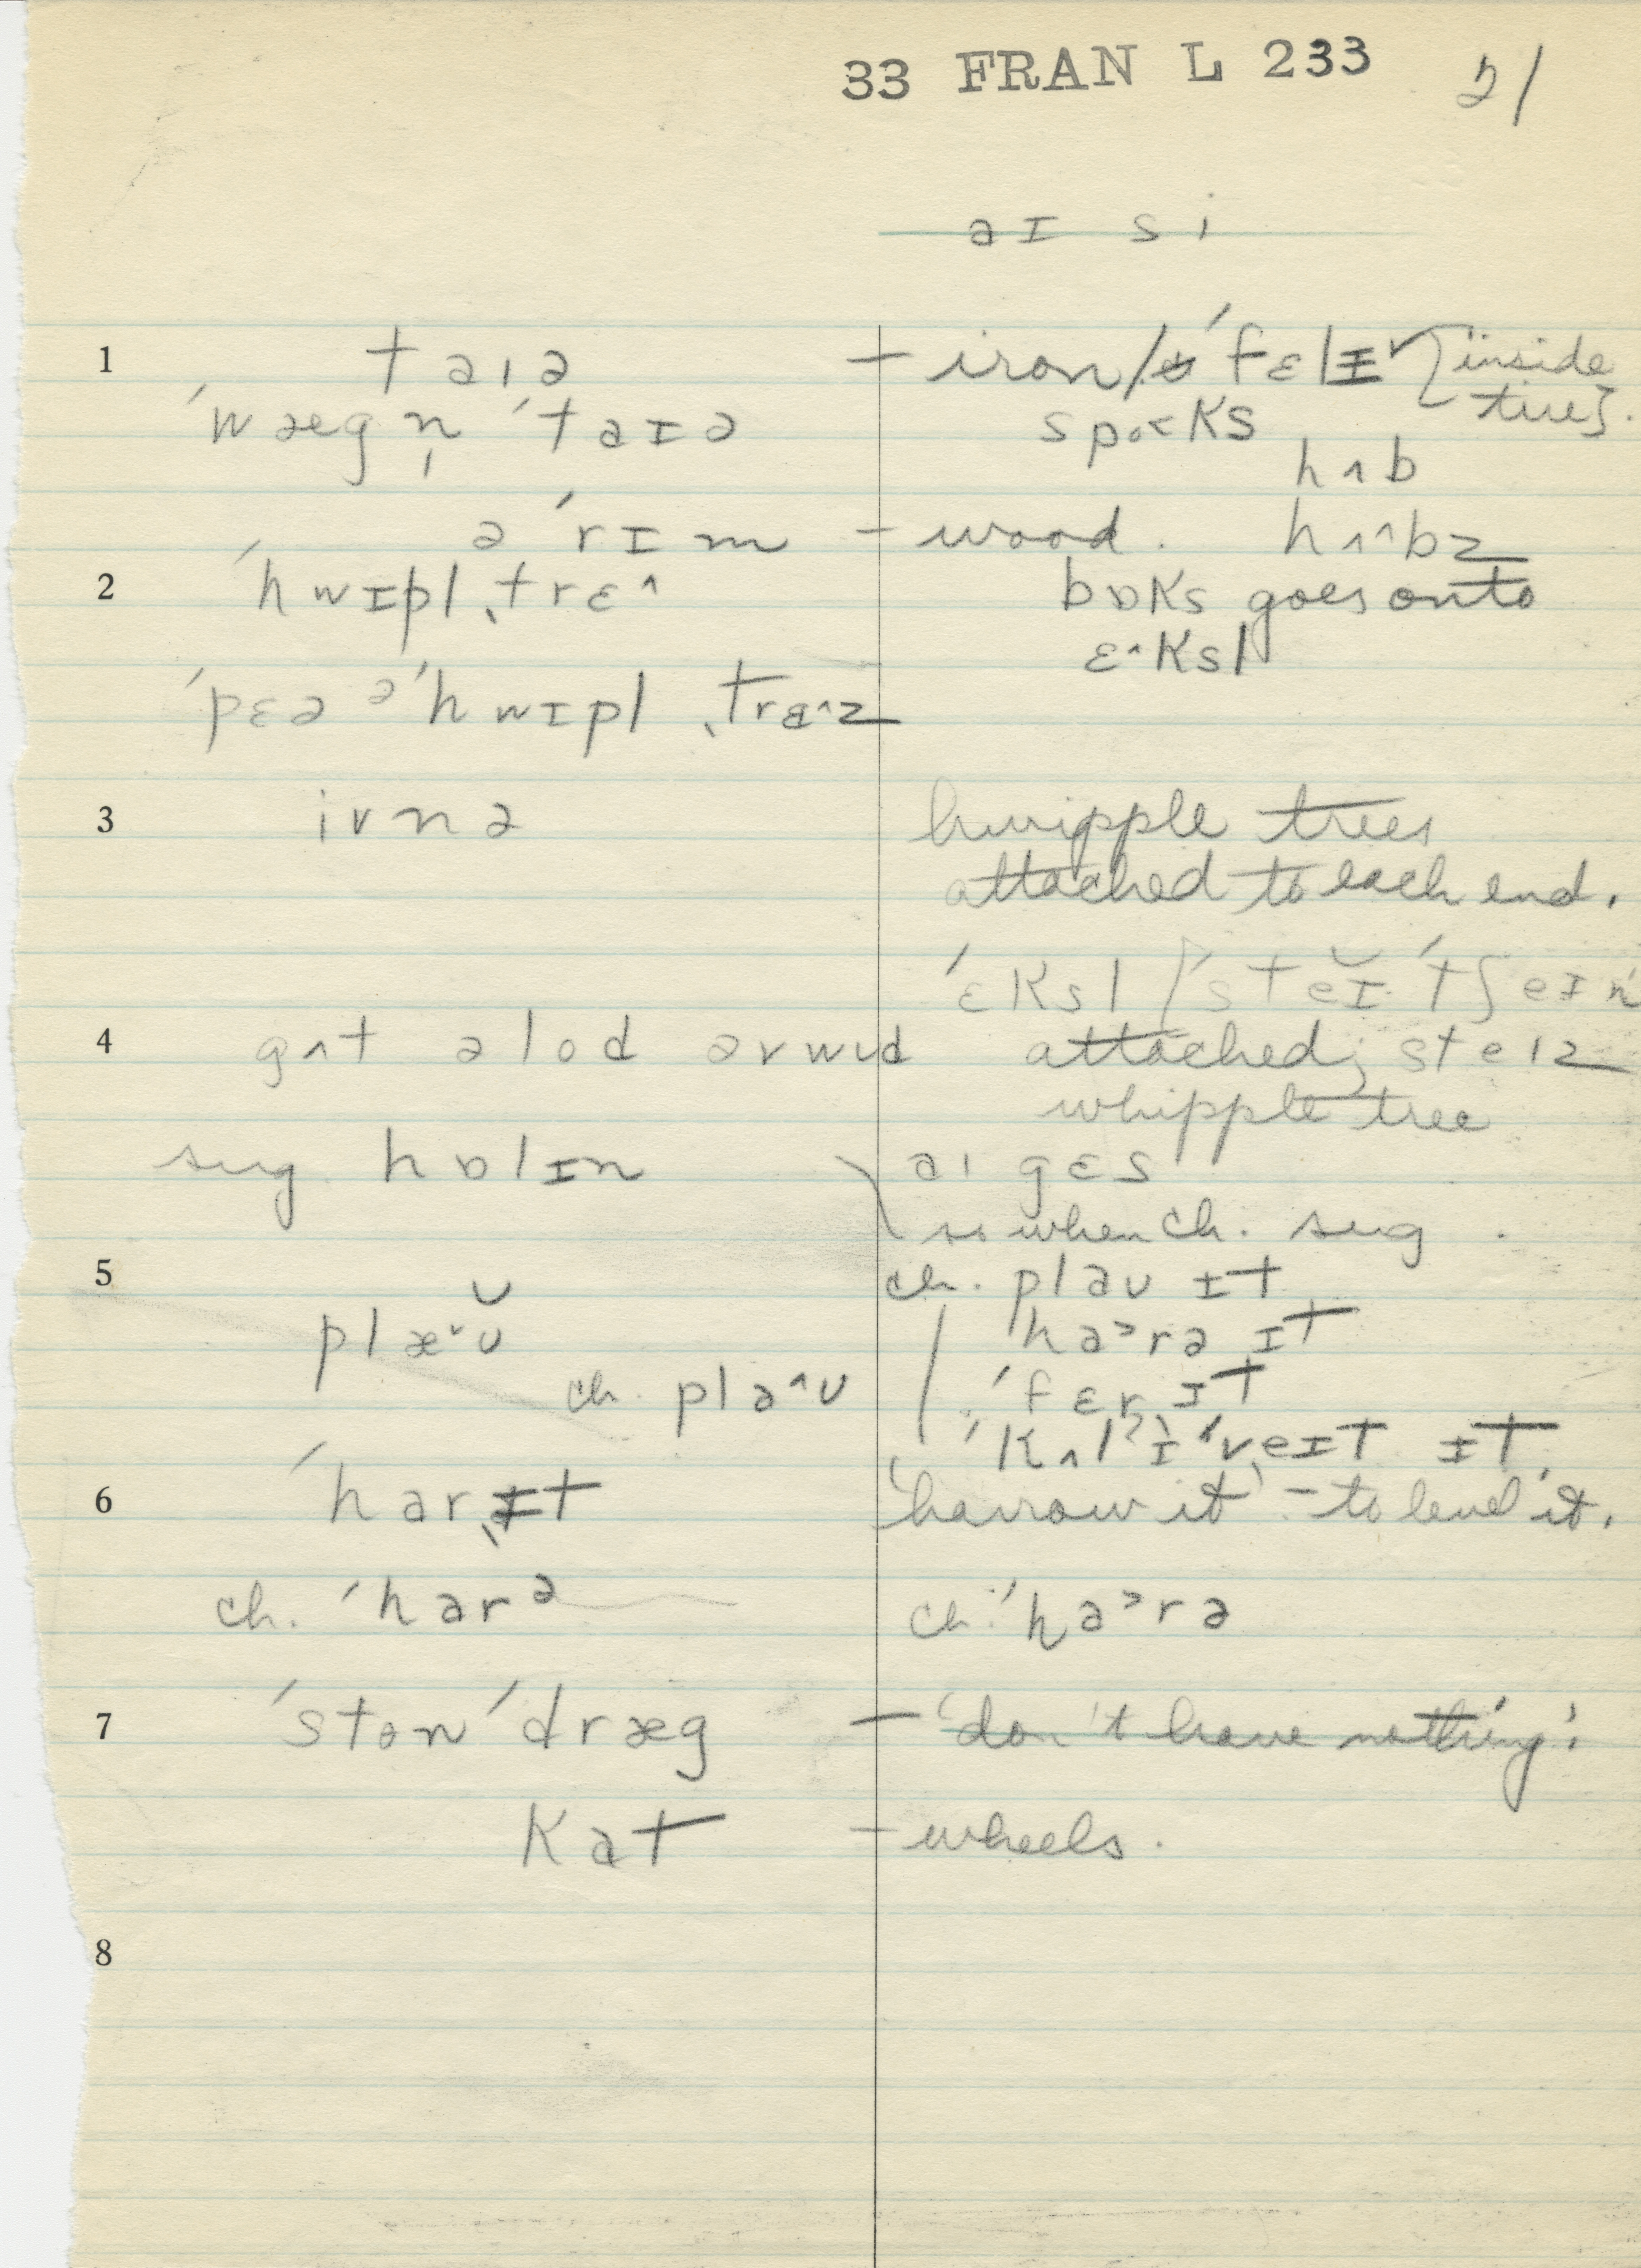 33 FRAN L 233 21
aɪ si
1 taɪə – iron / ˈfɛlɪ˅ [inside
ˈwægn̩ ˈtaɪə spo˂ks tire].
hʌb
ə ˈrɪm – wood. hʌ^bz
2 ˈhwɪpl ˌtrɛ^ bɒks goes onto
ɛ^ksl
ˈpɛə əˈhwɪpl ˌtrɛ^z
3 ivnə hwipple trees
attached to each end.
ˈɛksl / ˈstĕɪ ˈtʃeɪn
4 gʌt əlod əvwud attached; steɪz
whipple tree
sug. hɒlɪn aɪ gɛs
so when ch. sug.
5 ch. plaʊ ɪt
plæ˅ʊ̆ ha˃rə ɪt
ch. pla^ʊ ˈfɛr ɪt
ˈkʌlˀɪˈveɪt ɪt
6 ˈharˌɪt 'harrow it' – to level it.
ch. ˈharə ch. ˈha˃rə
7 ˈstonˈdræg – 'don't have nothing'.
kat – wheels.
8